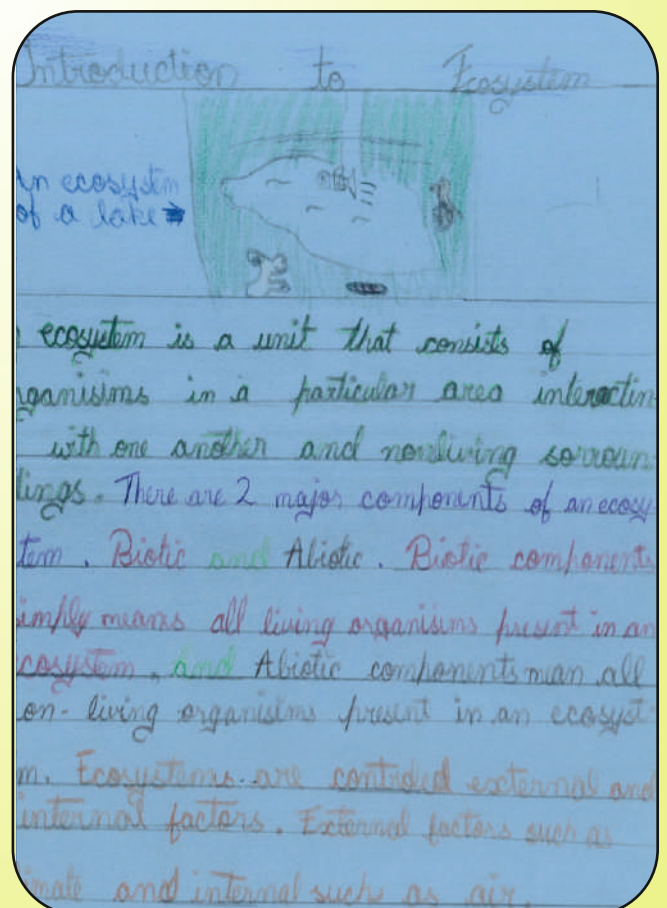 Introduction to Ecosystem
An ecosystem
of a lake →
ecosystem is a unit that consists of
rganisims in a particular area interactin
with one another and nonliving sorroun
dings. There are 2 major components of an ecosy
tem. Biotic and Abiotic. Biotic components
simply means all living organisims present in an
cosystem, and Abiotic components mean all
on-living organisims present in an ecosyst
m. Ecosystems are controled external and
internal factors. External factors such as
imate and internal such as air.